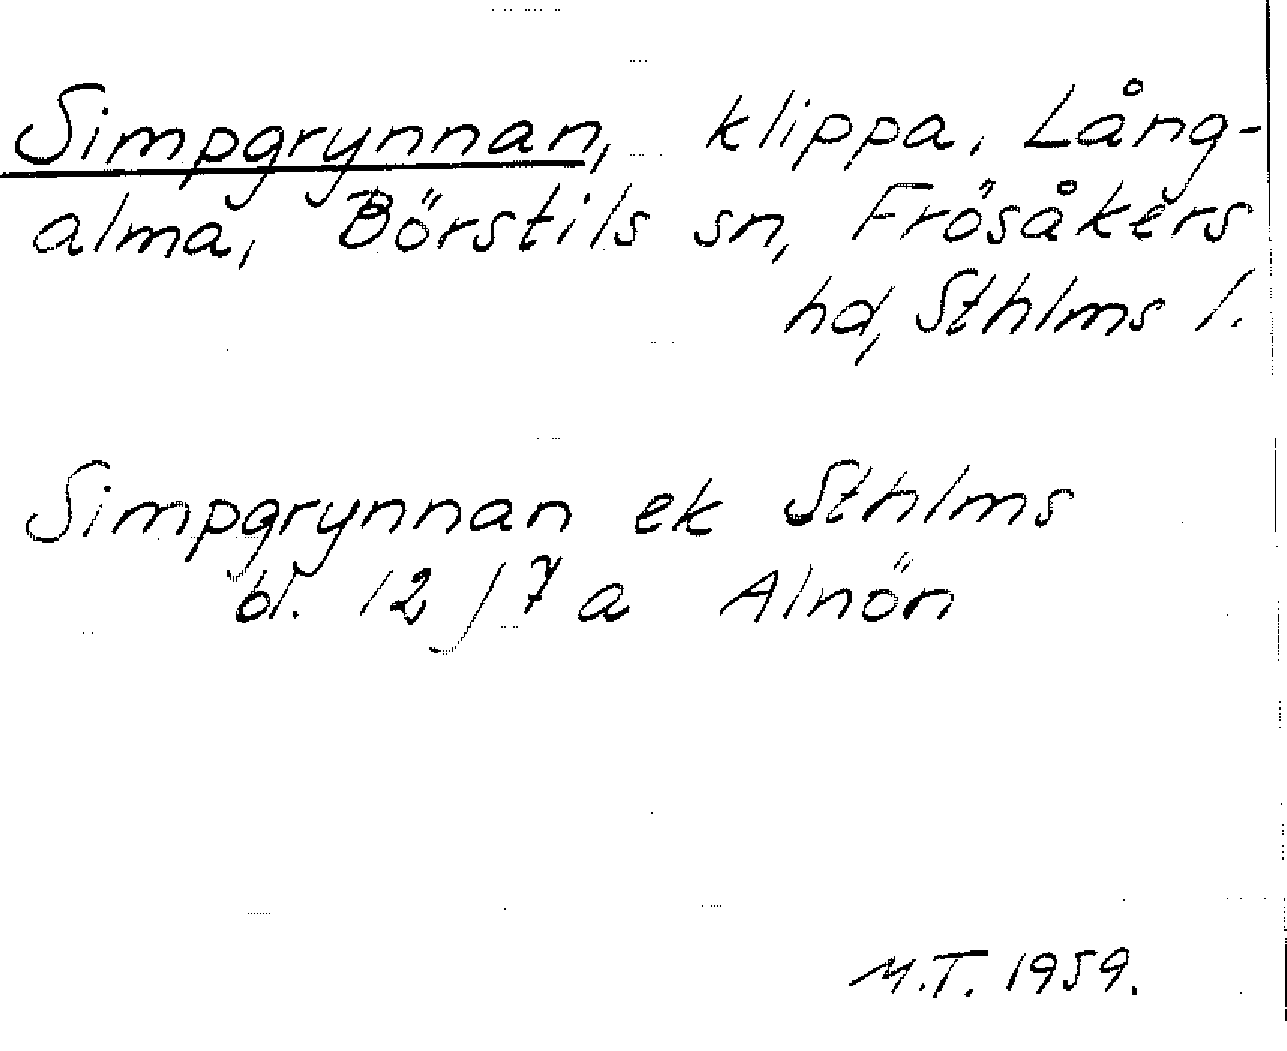 Simpgrynnan, klippa, Lång-
alma, Börstils sn, Frösåkers
hd, Sthlms l.
Simpgrynnan ek Sthlms
bl. 12 J7a Alnön
M.T. 1959.